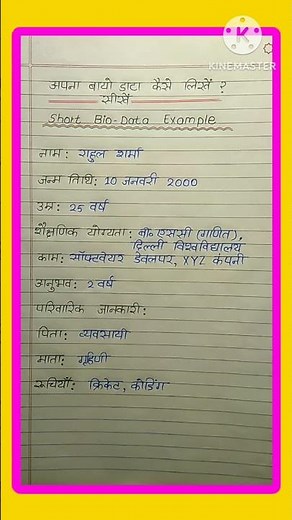 KINEMASTER
अपना बायो डाटा कैसे लिखें ?
सीखें
Short Bio-Data Example
नाम: राहुल शर्मा
जन्म तिथि: 10 जनवरी 2000
उम्र: 25 वर्ष
शैक्षणिक योग्यता: बी० एससी (गणित),
दिल्ली विश्वविद्यालय
काम: सॉफ्टवेयर डेवलपर, XYZ कंपनी
अनुभव: 2 वर्ष
परिवारिक जानकारी:
पिता: व्यवसायी
माता: गृहिणी
रूचियाँ: क्रिकेट, कोडिंग